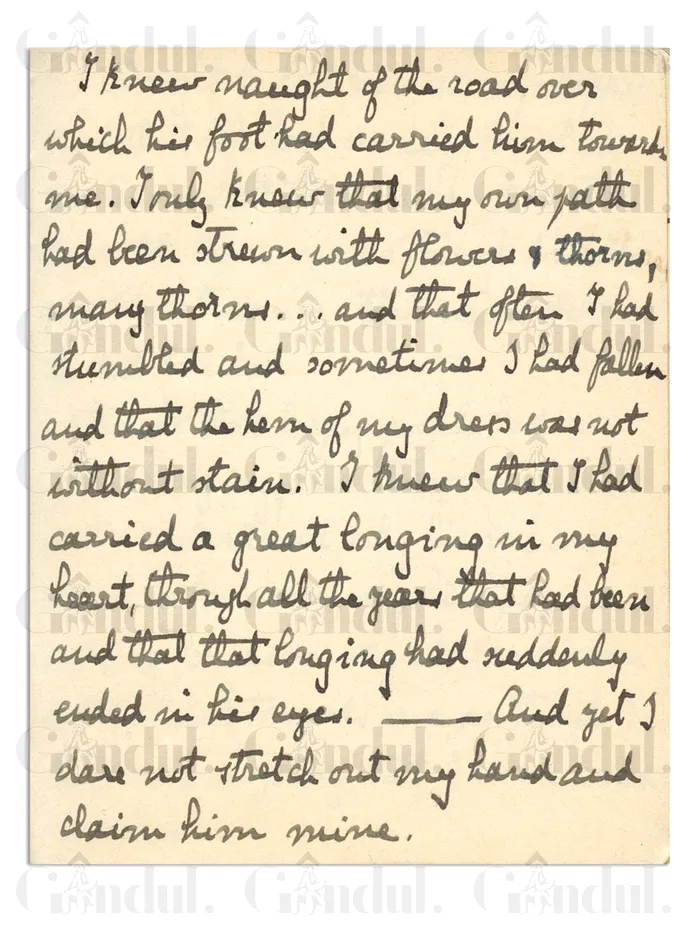 I knew naught of the road over
which his foot had carried him towards
me. I only knew that my own path
had been strewn with flowers & thorns,
many thorns... and that often I had
stumbled and sometimes I had fallen
and that the hem of my dress was not
without stain. I knew that I had
carried a great longing in my
heart, through all the years that had been
and that that longing had suddenly
ended in his eyes. —— And yet I
dare not stretch out my hand and
claim him mine.